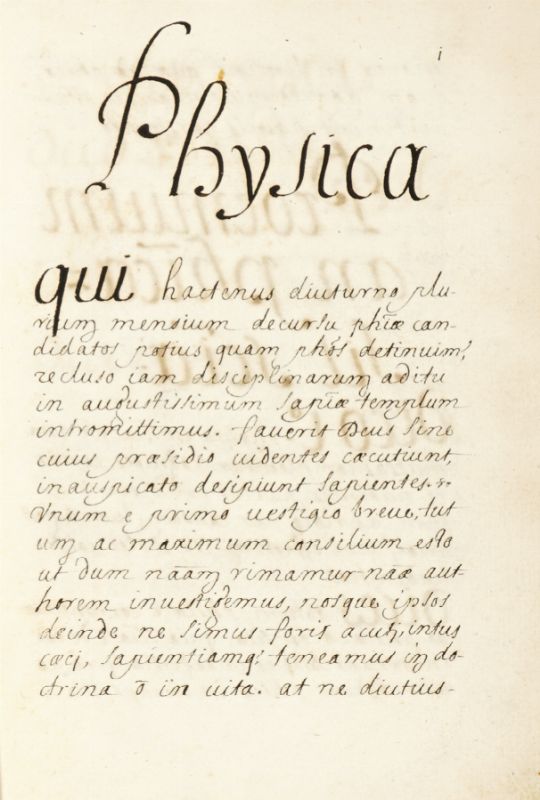 1
Physica
qui hactenus diuturno plu-
rium mensium decursu phiæ can-
didatos potius quam phos detinuim9,
recluso iam disciplinarum aditu
in augustissimum sapiæ templum
intromittimus. faverit Deus sine
cuius præsidio uidentes cæcutiunt,
inauspicato desipiunt sapientes.
Vnum e primo uestigio breve, tut
um ac maximum consilium esto
ut dum nãam rimamur nãæ aut-
horem inuestigemus, nosque ipsos
deinde ne simus foris acuti, intus
cæci, sapientiamq; teneamus in do-
ctrina õ in uita. at ne diutius-